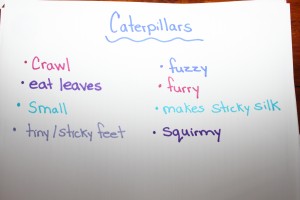 Caterpillars
• Crawl
• eat leaves
• Small
• tiny/sticky feet
• fuzzy
• furry
• makes sticky silk
• squirmy